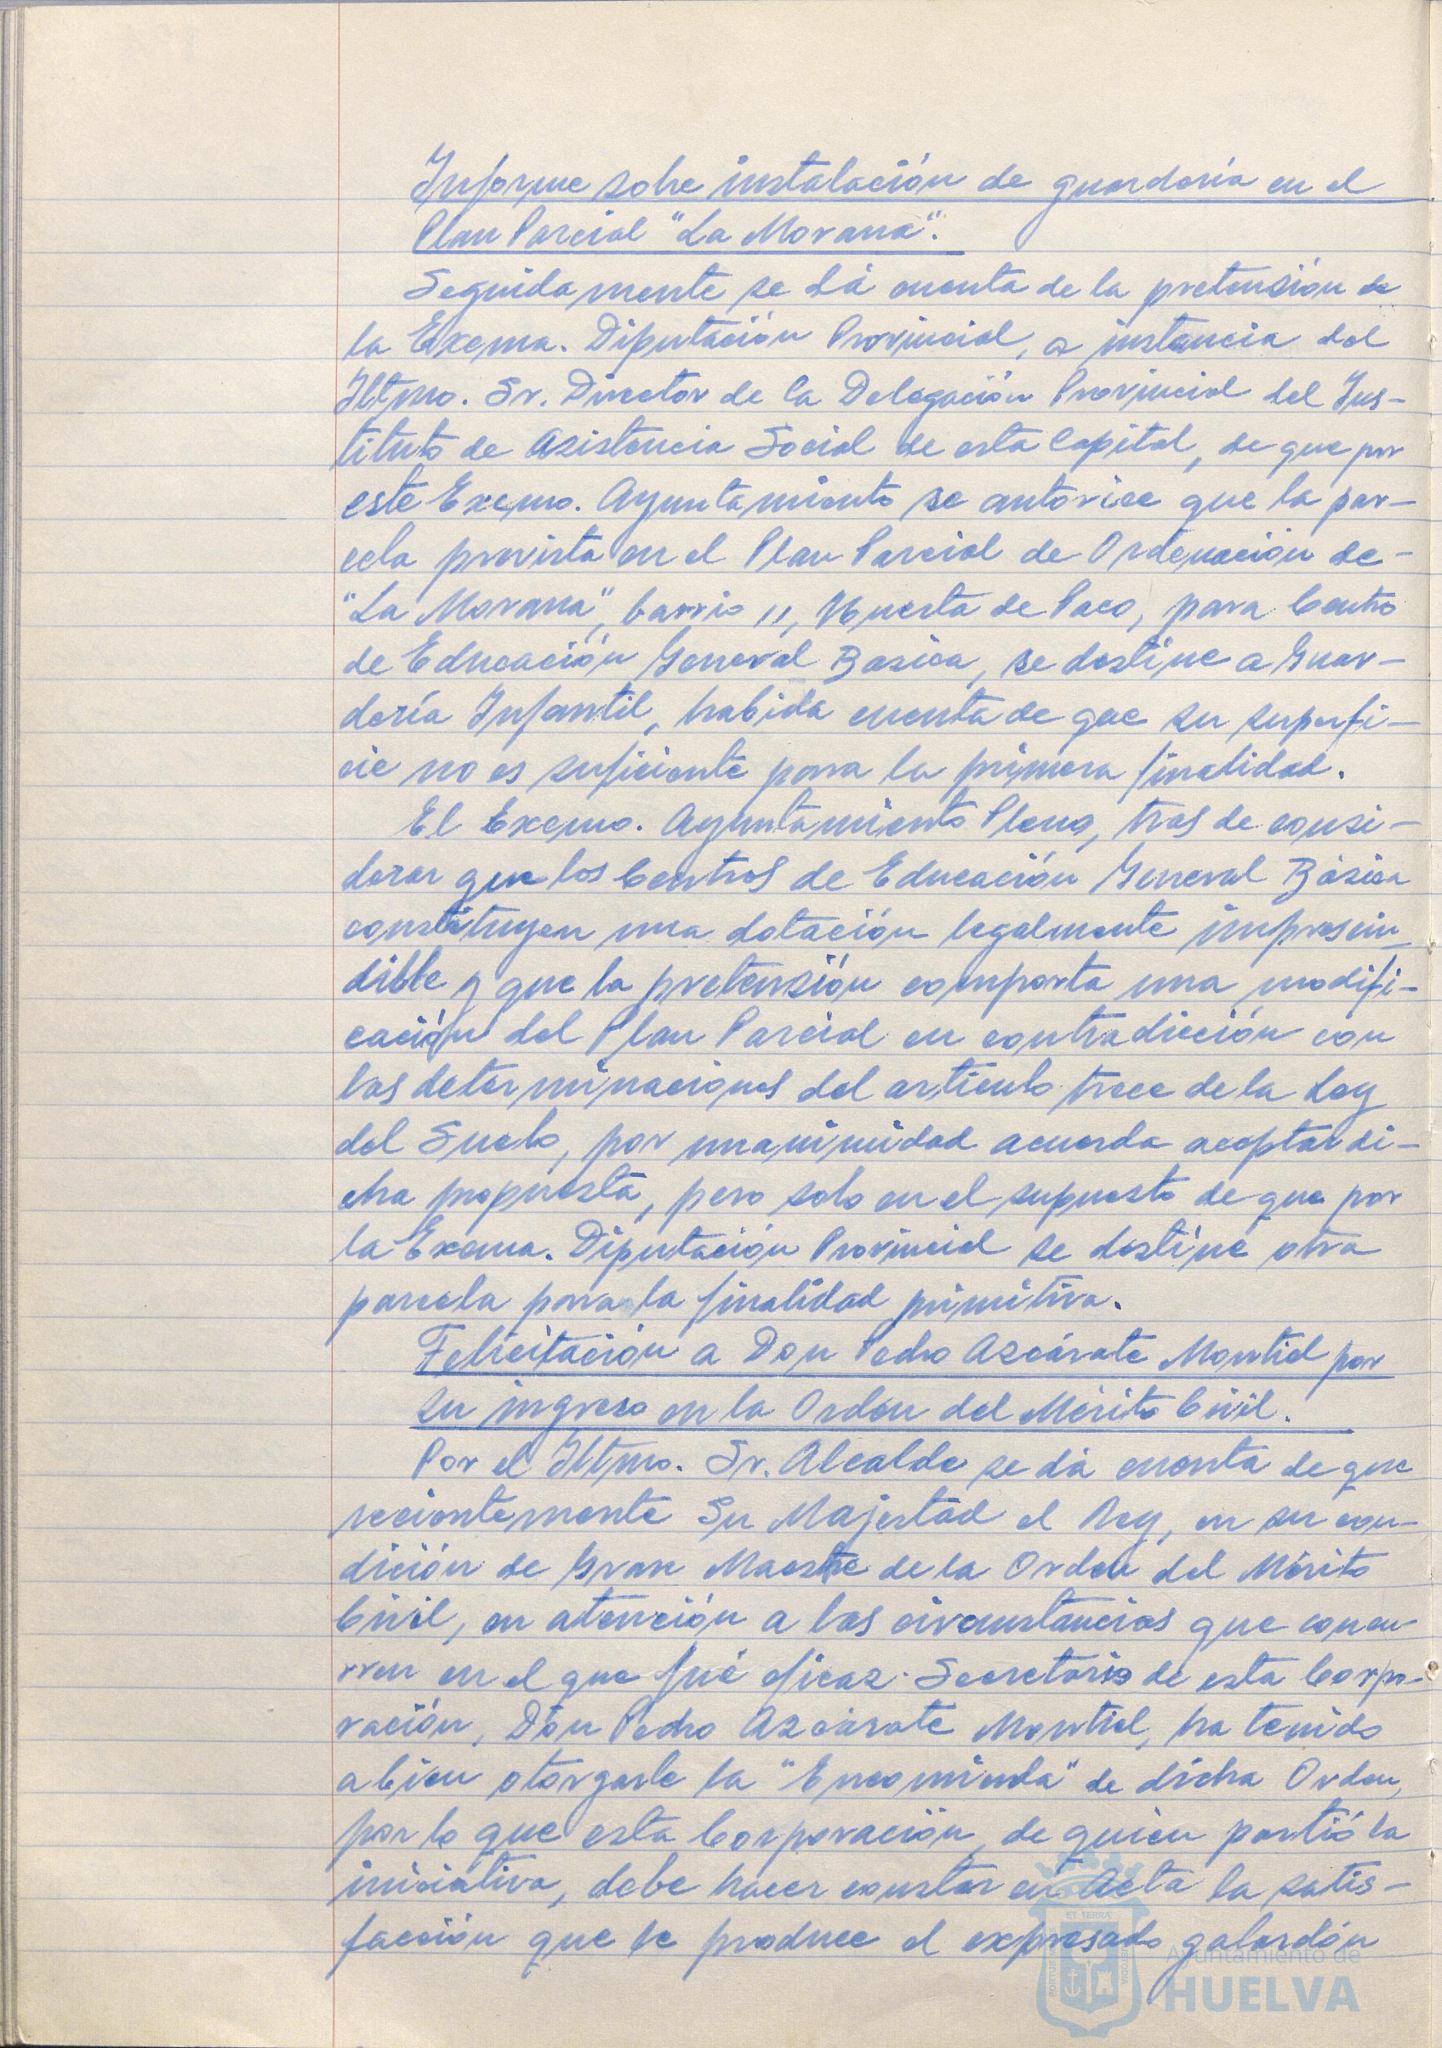 Informe sobre instalación de guardería en el
Plan Parcial "La Morana".
Seguidamente se dá cuenta de la pretensión de
la Excma. Diputación Provincial, a instancia del
Iltmo. Sr. Director de la Delegación Provincial del Ins-
tituto de Asistencia Social de esta Capital, de que por
este Excmo. Ayuntamiento se autorice que la par-
cela prevista en el Plan Parcial de Ordenación de-
"La Morana", barrio 11, Huerta de Paco, para Centro
de Educación General Basica, se destine a Guar-
dería Infantil, habida cuenta de que su superfi-
cie no es suficiente para la primera finalidad.
El Excmo. Ayuntamiento Pleno, tras de consi-
derar que los Centros de Educación General Básica
constituyen una dotación legalmente imprescin-
dible y que la pretensión comporta una modifi-
cación del Plan Parcial en contradicción con
las determinaciones del artículo trece de la Ley
del Suelo, por unanimidad acuerda aceptar di-
cha propuesta, pero solo en el supuesto de que por
la Excma. Diputación Provincial se destine otra
parcela para la finalidad primitiva.
Felicitación a Don Pedro Azcárate Montiel por
su ingreso en la Orden del Mérito Civil.
Por el Iltmo. Sr. Alcalde se dá cuenta de que
recientemente Su Majestad el Rey, en su con-
dición de Gran Maestre de la Orden del Mérito
Civil, en atención a las circunstancias que concu-
rren en el que fué eficaz Secretario de esta Corpo-
ración, Don Pedro Azcárate Montiel, ha tenido
a bien otorgarle la "Encomienda" de dicha Orden,
por lo que esta Corporación, de quien partió la
iniciativa, debe hacer constar en Acta la satis-
facción que le produce el expresado galardón
Ayuntamiento de
HUELVA